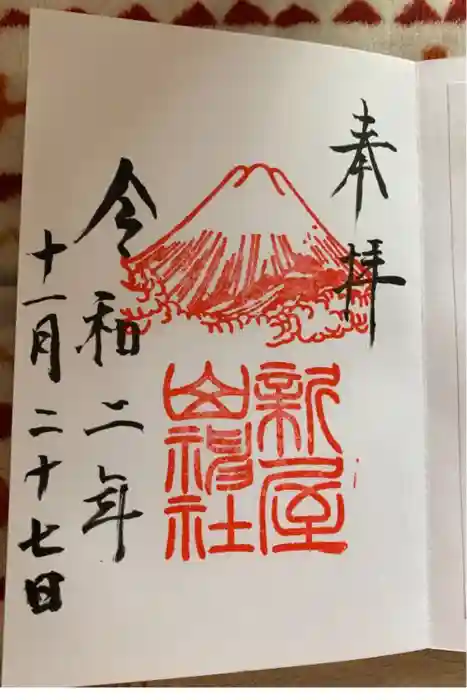 奉拝
新屋
山神社
令和二年
十一月二十七日